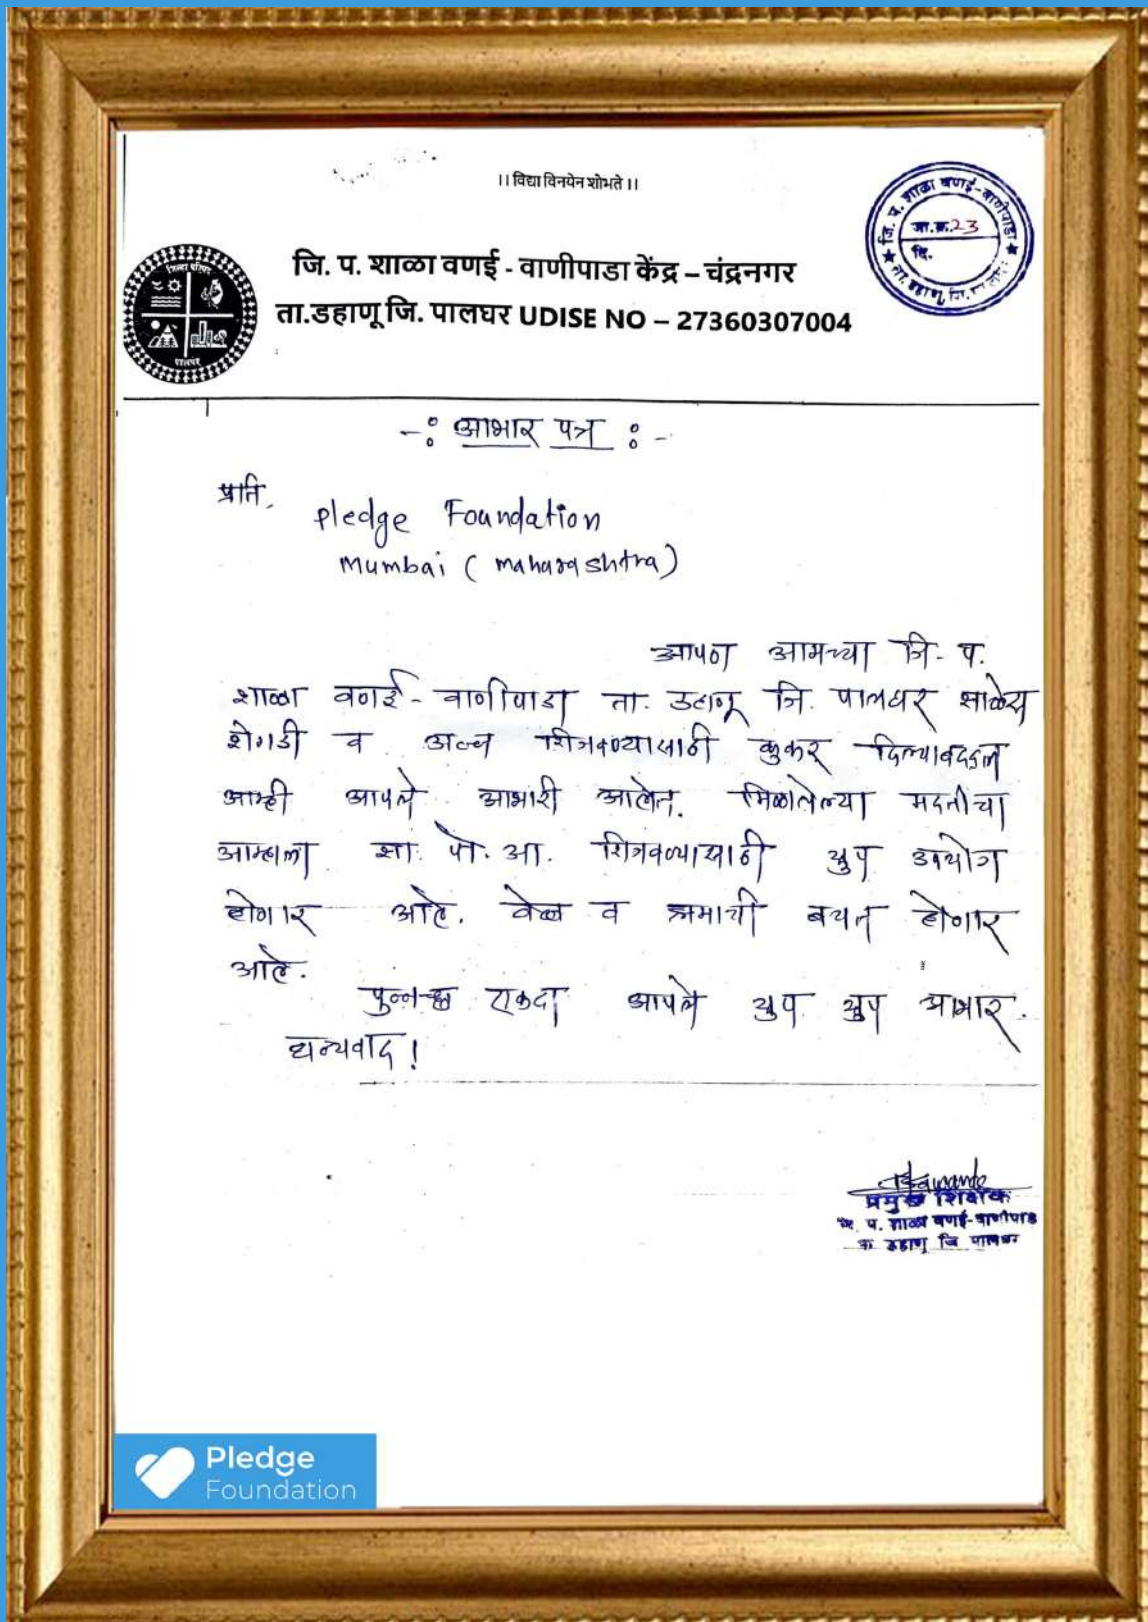 ।। विद्या विनयेन शोभते ।।
जि. प. शाळा वणई-वाणीपाडा
जा.क्र.23
दि.
ता. डहाणू, जि.
जिल्हा परिषद
पालघर
जि. प. शाळा वणई - वाणीपाडा केंद्र – चंद्रनगर
ता.डहाणू जि. पालघर UDISE NO – 27360307004
-: आभार पत्र :-
प्रति,
Pledge Foundation
Mumbai ( Maharashtra )
आपण आमच्या जि. प.
शाळा वणई - वाणीपाडा ता. डहाणू जि. पालघर शाळेस
शेगडी व अन्न शिजवण्यासाठी कुकर दिल्याबद्दल
आम्ही आपले आभारी आहोत. मिळालेल्या मदतीचा
आम्हाला शा. पो. आ. शिजवण्यासाठी खुप उपयोग
होणार आहे. वेळ व श्रमाची बचत होणार
आहे.
एकदा आपले खुप खुप आभार.
धन्यवाद !
प्रमुख शिक्षक
जि. प. शाळा वणई-वाणीपाडा
डहाणू जि पालघर
Pledge
Foundation